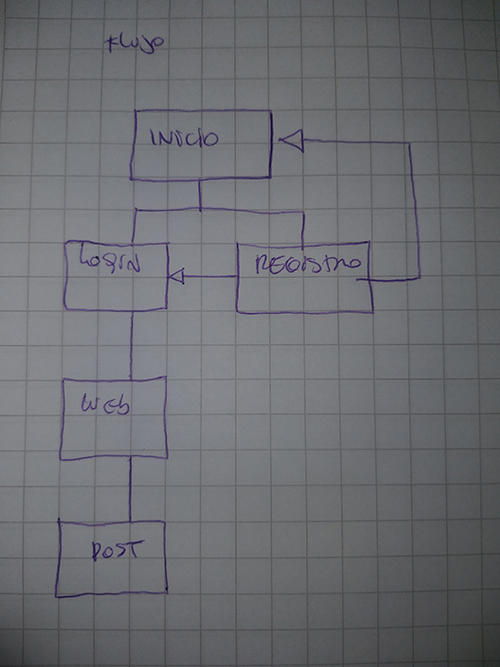 Flujo
INICIO
LOGIN
REGISTRO
WEB
POST